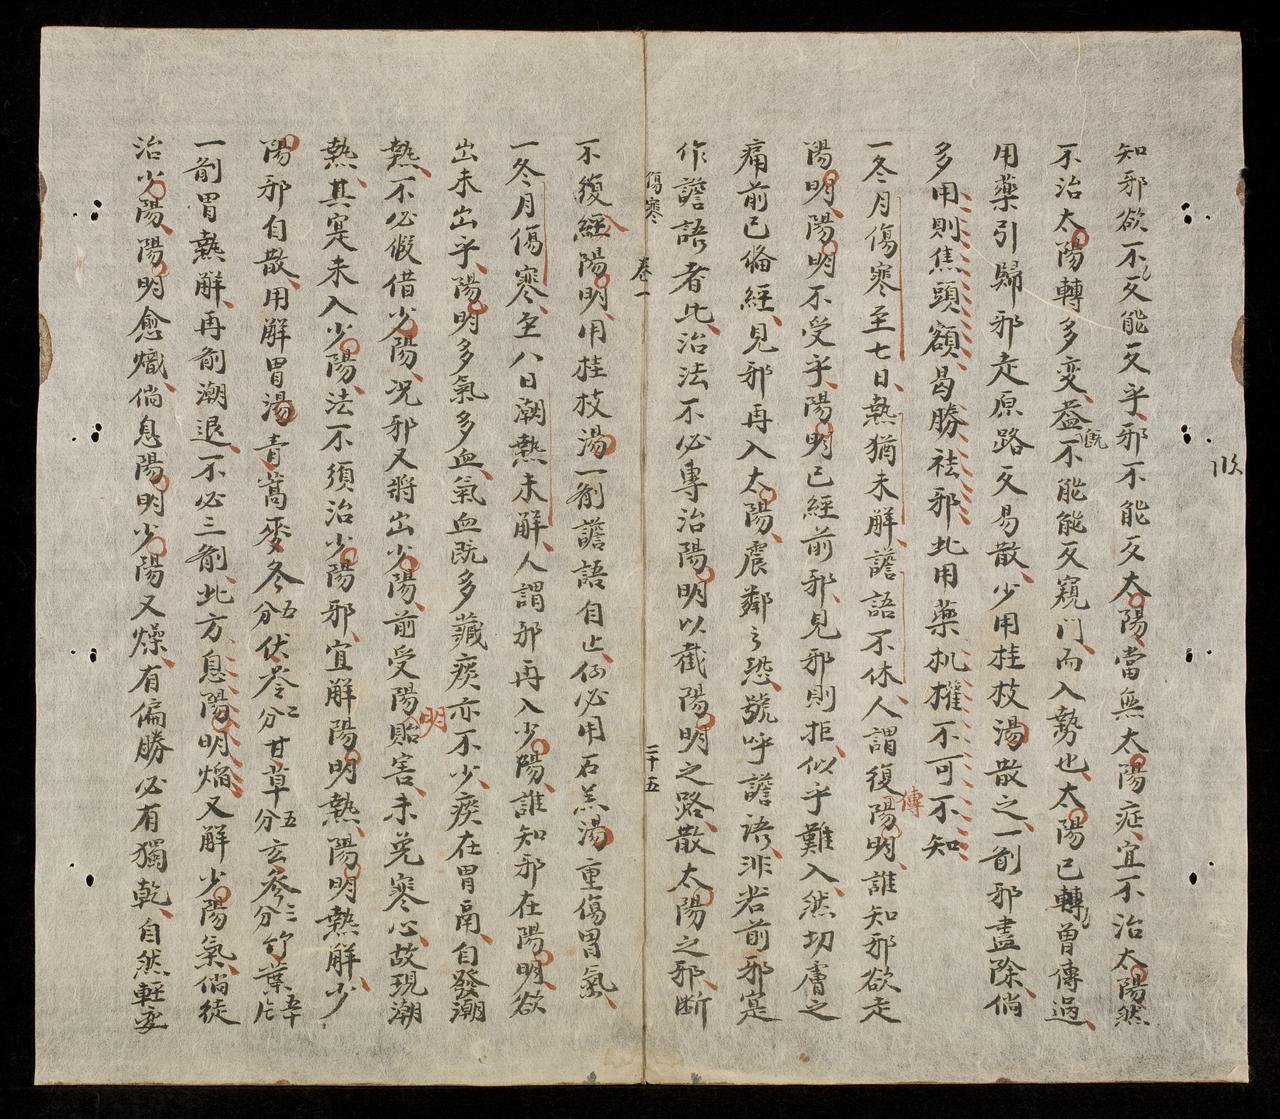 知邪欲不反能反乎邪不能反太陽當無太陽症宜不治太陽然
不治太陽轉多变益不能能反窺門而入勢也太陽已轉曾傳過
用藥引歸邪走原路反易散少用桂枝湯散之一剤邪盡除倘
多用則焦頭額曷勝祛邪此用藥机權不可不知
一冬月傷寒至七日熱猶未解譫語不休人謂復陽明誰知邪欲走
傳
陽明陽明不受乎陽明已經前邪見邪則拒似乎難入然切膚之
痛前已偹經見邪再入太陽震鄰之恐號呼譫語非若前邪寔
作譫語者比治法不必專治陽明以截陽明之路散太陽之邪断
傷寒 卷一 二十五
不復經陽明用桂枝湯一剤譫語自止倘必用石羔湯重傷胃氣
一冬月傷寒至八日潮熱未解人謂邪再入少陽誰知邪在陽明欲
出未出乎陽明多氣多血氣血既多藏痰亦不少痰在胃鬲自發潮
熱不必假借少陽况邪又將出少陽前受陽貽害未免寒心故現潮
明
熱其寔未入少陽法不須治少陽邪宜解陽明熱陽明熱解少
陽邪自散用解胃湯青蒿麥冬分五伏苓分二甘草分五玄參分三竹葉片五十
一剤胃熱解再剤潮退不必三剤此方息陽明焔又解少陽氣倘徒
治少陽陽明愈熾倘息陽明少陽又燥有偏勝必有獨乾自然輕变